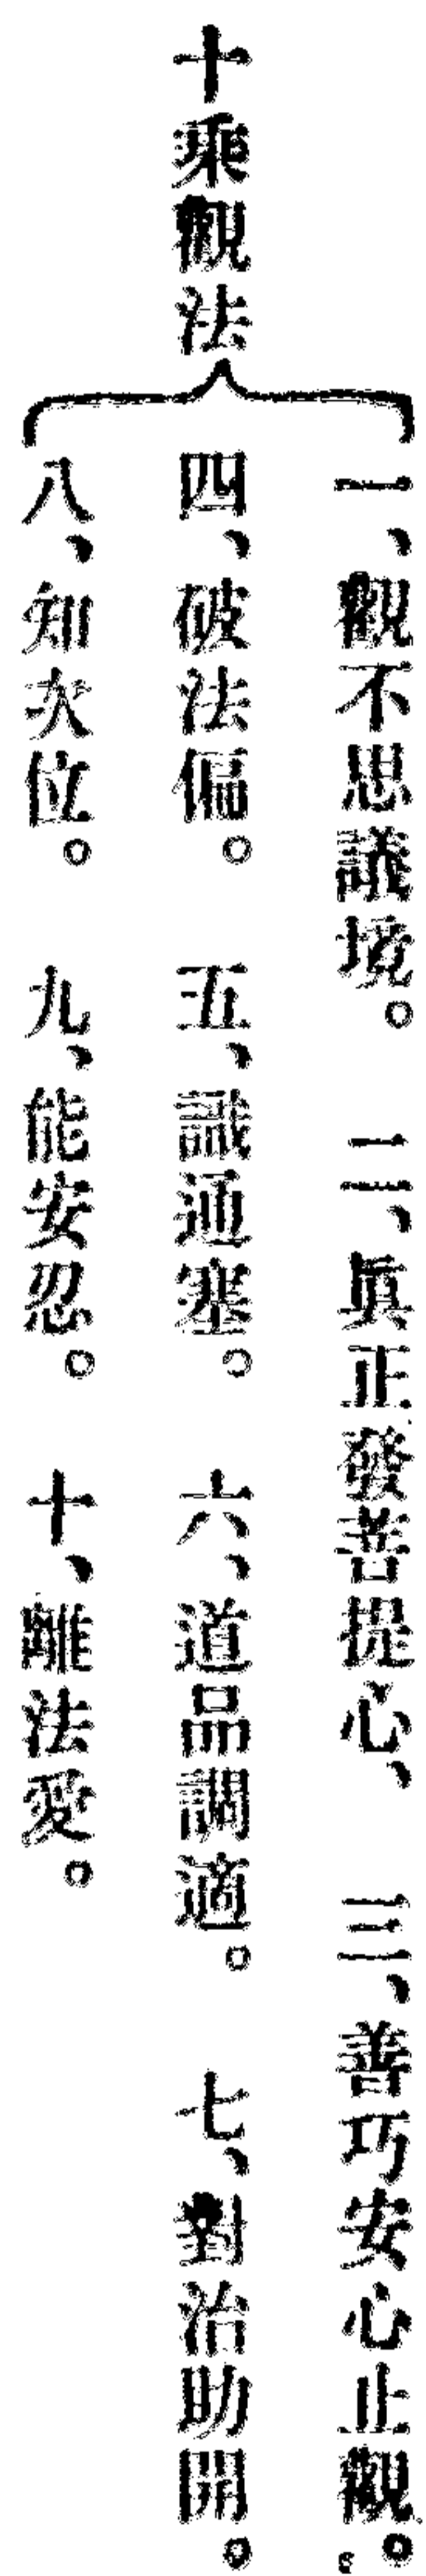 十乘觀法
一、觀不思議境。　二、眞正發菩提心、　三、善巧安心止觀。
四、破法偏。　五、識通塞。　六、道品調適。　七、對治助開。
八、知次位。　九、能安忍。　十、離法愛。